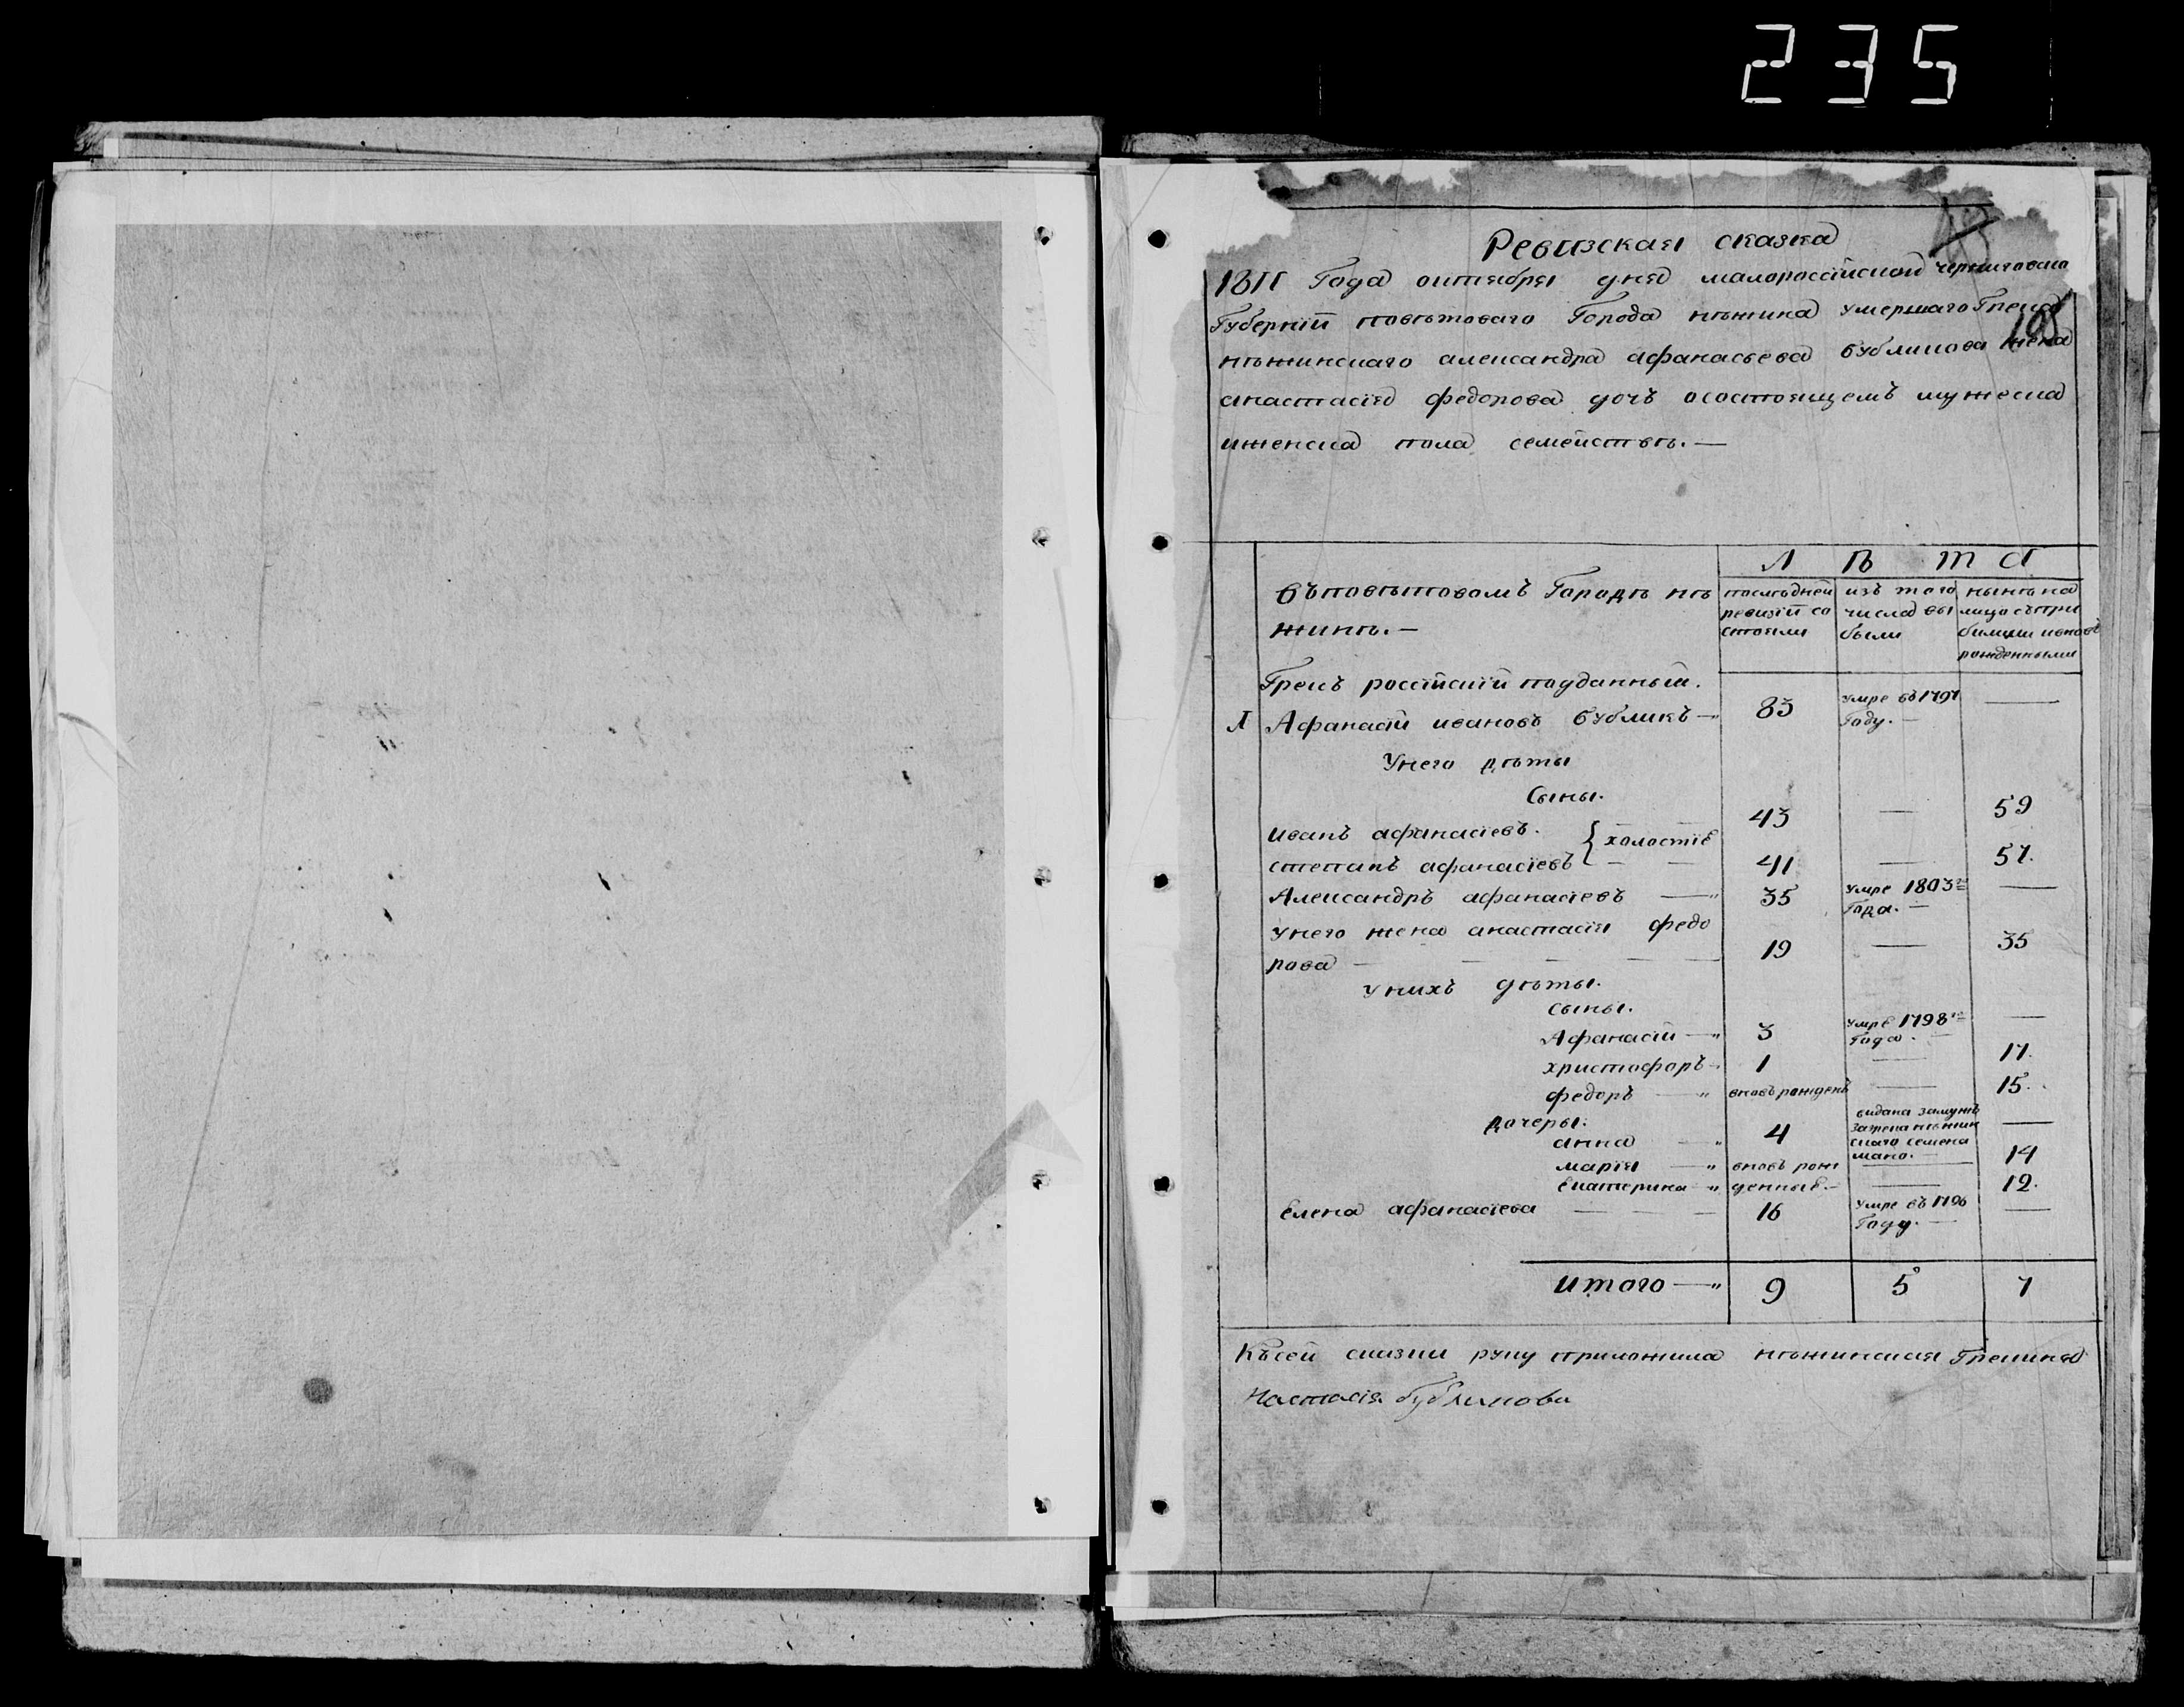 235
Ревизская сказка
1811 Года октября дня малороссійской черниговской
Губерніи повѣтоваго Города нѣжина умершаго Грека
198
нѣжинскаго александра афанасьева бубликова жена
анастасія федорова дочъ осостоящемъ мужеска
иженска пола семействѣ.—
Л Ѣ Т А
вѣповѣтовомъ Городѣ нѣ
жинѣ.—
последней ревизіи состояли
изъ того числа выбыли
нынѣ на лицо съприбилими ивновь рожденными
Грекъ россійскій подданный.
1 Афанасій ивановъ бубликъ —„ 83 умре въ 1797 Году.— —
Унего дѣты
Сыны.
иванъ афанасіевъ. 43 — 59
{холостіе
степанъ афанасіевъ — — 41 — 57.
Александръ афанасіевъ —„ 35 умре 1803го Года.— —
унего жена анастасія федо
рова — — — — 19 — 35
унихъ дѣты.
сыны.
Афанасій —„ 3 умре 1798го Года.— —
христофоръ —„ 1 — 17.
федоръ —„ вновьрожденъ — 15.
дочеры.
анна —„ 4 видана замужъ загрека нѣжинскаго семена мано.— —
марія —„ вновь рож — 14
екатерина —„ денные.— — 12.
Елена афанасіева — — — 16 умре въ 1796 Году.— —
итого —„ 9 5 7
Късей сказки руку приложила нѣжинская Грекиня
Настасія бубликова